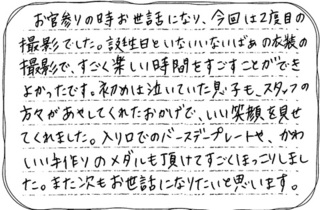 お宮参りの時お世話になり、今回は2度目の
撮影でした。誕生日といないいないばぁの衣装の
撮影で、すごく楽しい時間をすごすことができ
よかったです。初めは泣いていた息子も、スタッフの
方々があやしてくれたおかげで、いい笑顔を見せ
てくれました。入り口でのバースデープレートや、かわ
いい手作りのメダルも頂けてすごくほっこりしまし
た。また次もお世話になりたいと思います。